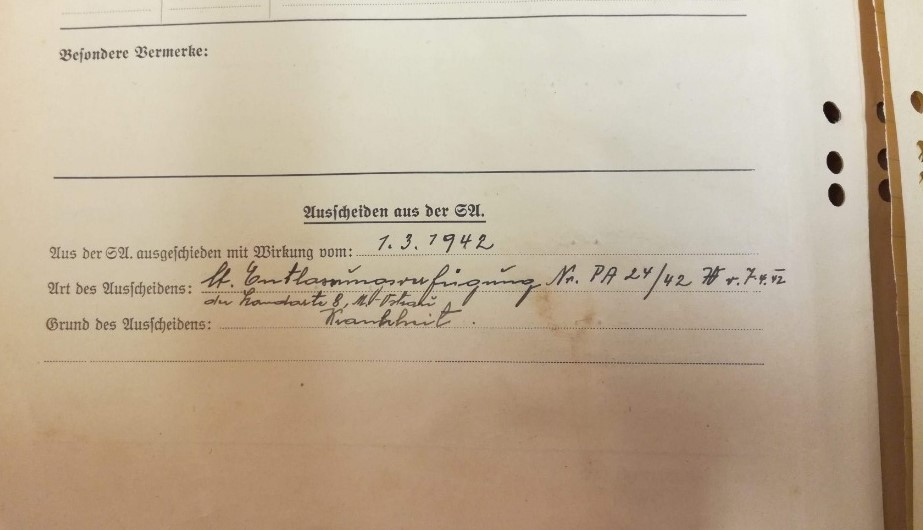 Besondere Vermerke:
Ausscheiden aus der SA.
Aus der SA. ausgeschieden mit Wirkung vom: 1.3.1942
Art des Ausscheidens: lt. Entlassungsverfügung Nr. PA 24/42 v. 7.4.42
der Standarte 8, M. Ostrau
Grund des Ausscheidens: Krankheit.